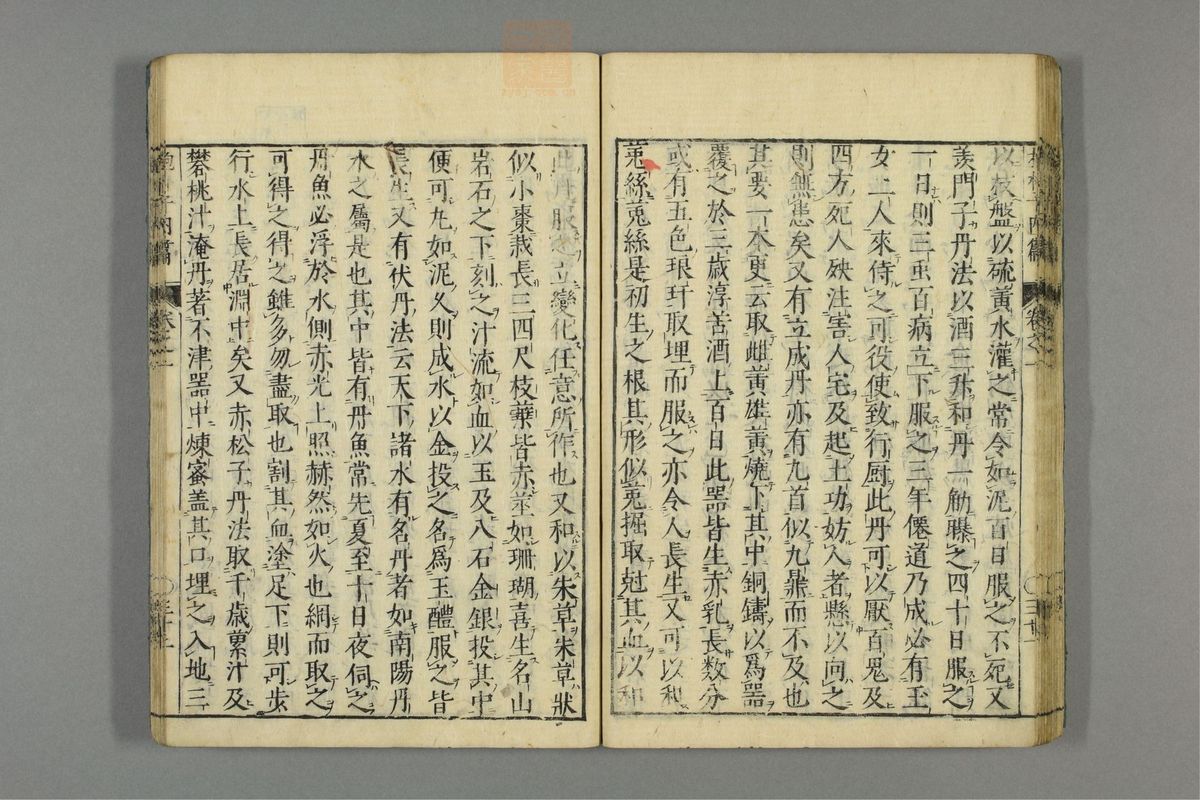 以枝盤以硫黃水灌之常令如泥百日服之不死又
羡門子丹法以酒三升和丹一觔曝之四十日服之
一日則三虫百病立下服之三年僊道乃成必有玉
女二人來侍之可役使致行厨此丹可以厭百鬼及
四方死人殃注害人宅及起土功妨人者懸以向之
則無患矣又有立成丹亦有九首似九鼎而不及也
其要一本更云取雌黃雄黃燒下其中銅鑄以爲器
覆之於三歲淳苦酒上百日此器皆生赤乳長数分
或有五色琅玕取埋而服之亦令人長生又可以和
菟絲菟絲是初生之根其形似菟掘取尅其血以和
此丹服之立變化任意所作也又和以朱草朱草狀
似小棗栽長三四尺枝葉皆赤莖如珊瑚喜生名山
岩石之下刻之汁流如血以玉及八石金銀投其中
便可丸如泥久則成水以金投之名爲玉醴服之皆
長生又有伏丹法云天下諸水有名丹者如南陽丹
水之屬是也其中皆有丹魚常先夏至十日夜伺之
丹魚必浮於水側赤光上照赫然如火也網而取之
可得之得之雖多勿盡取也割其血塗足下則可步
行水上長居淵中矣又赤松子丹法取千歲虆汁及
礬桃汁淹丹著不津器中煉蜜盖其口埋之入地三
內篇 卷之一